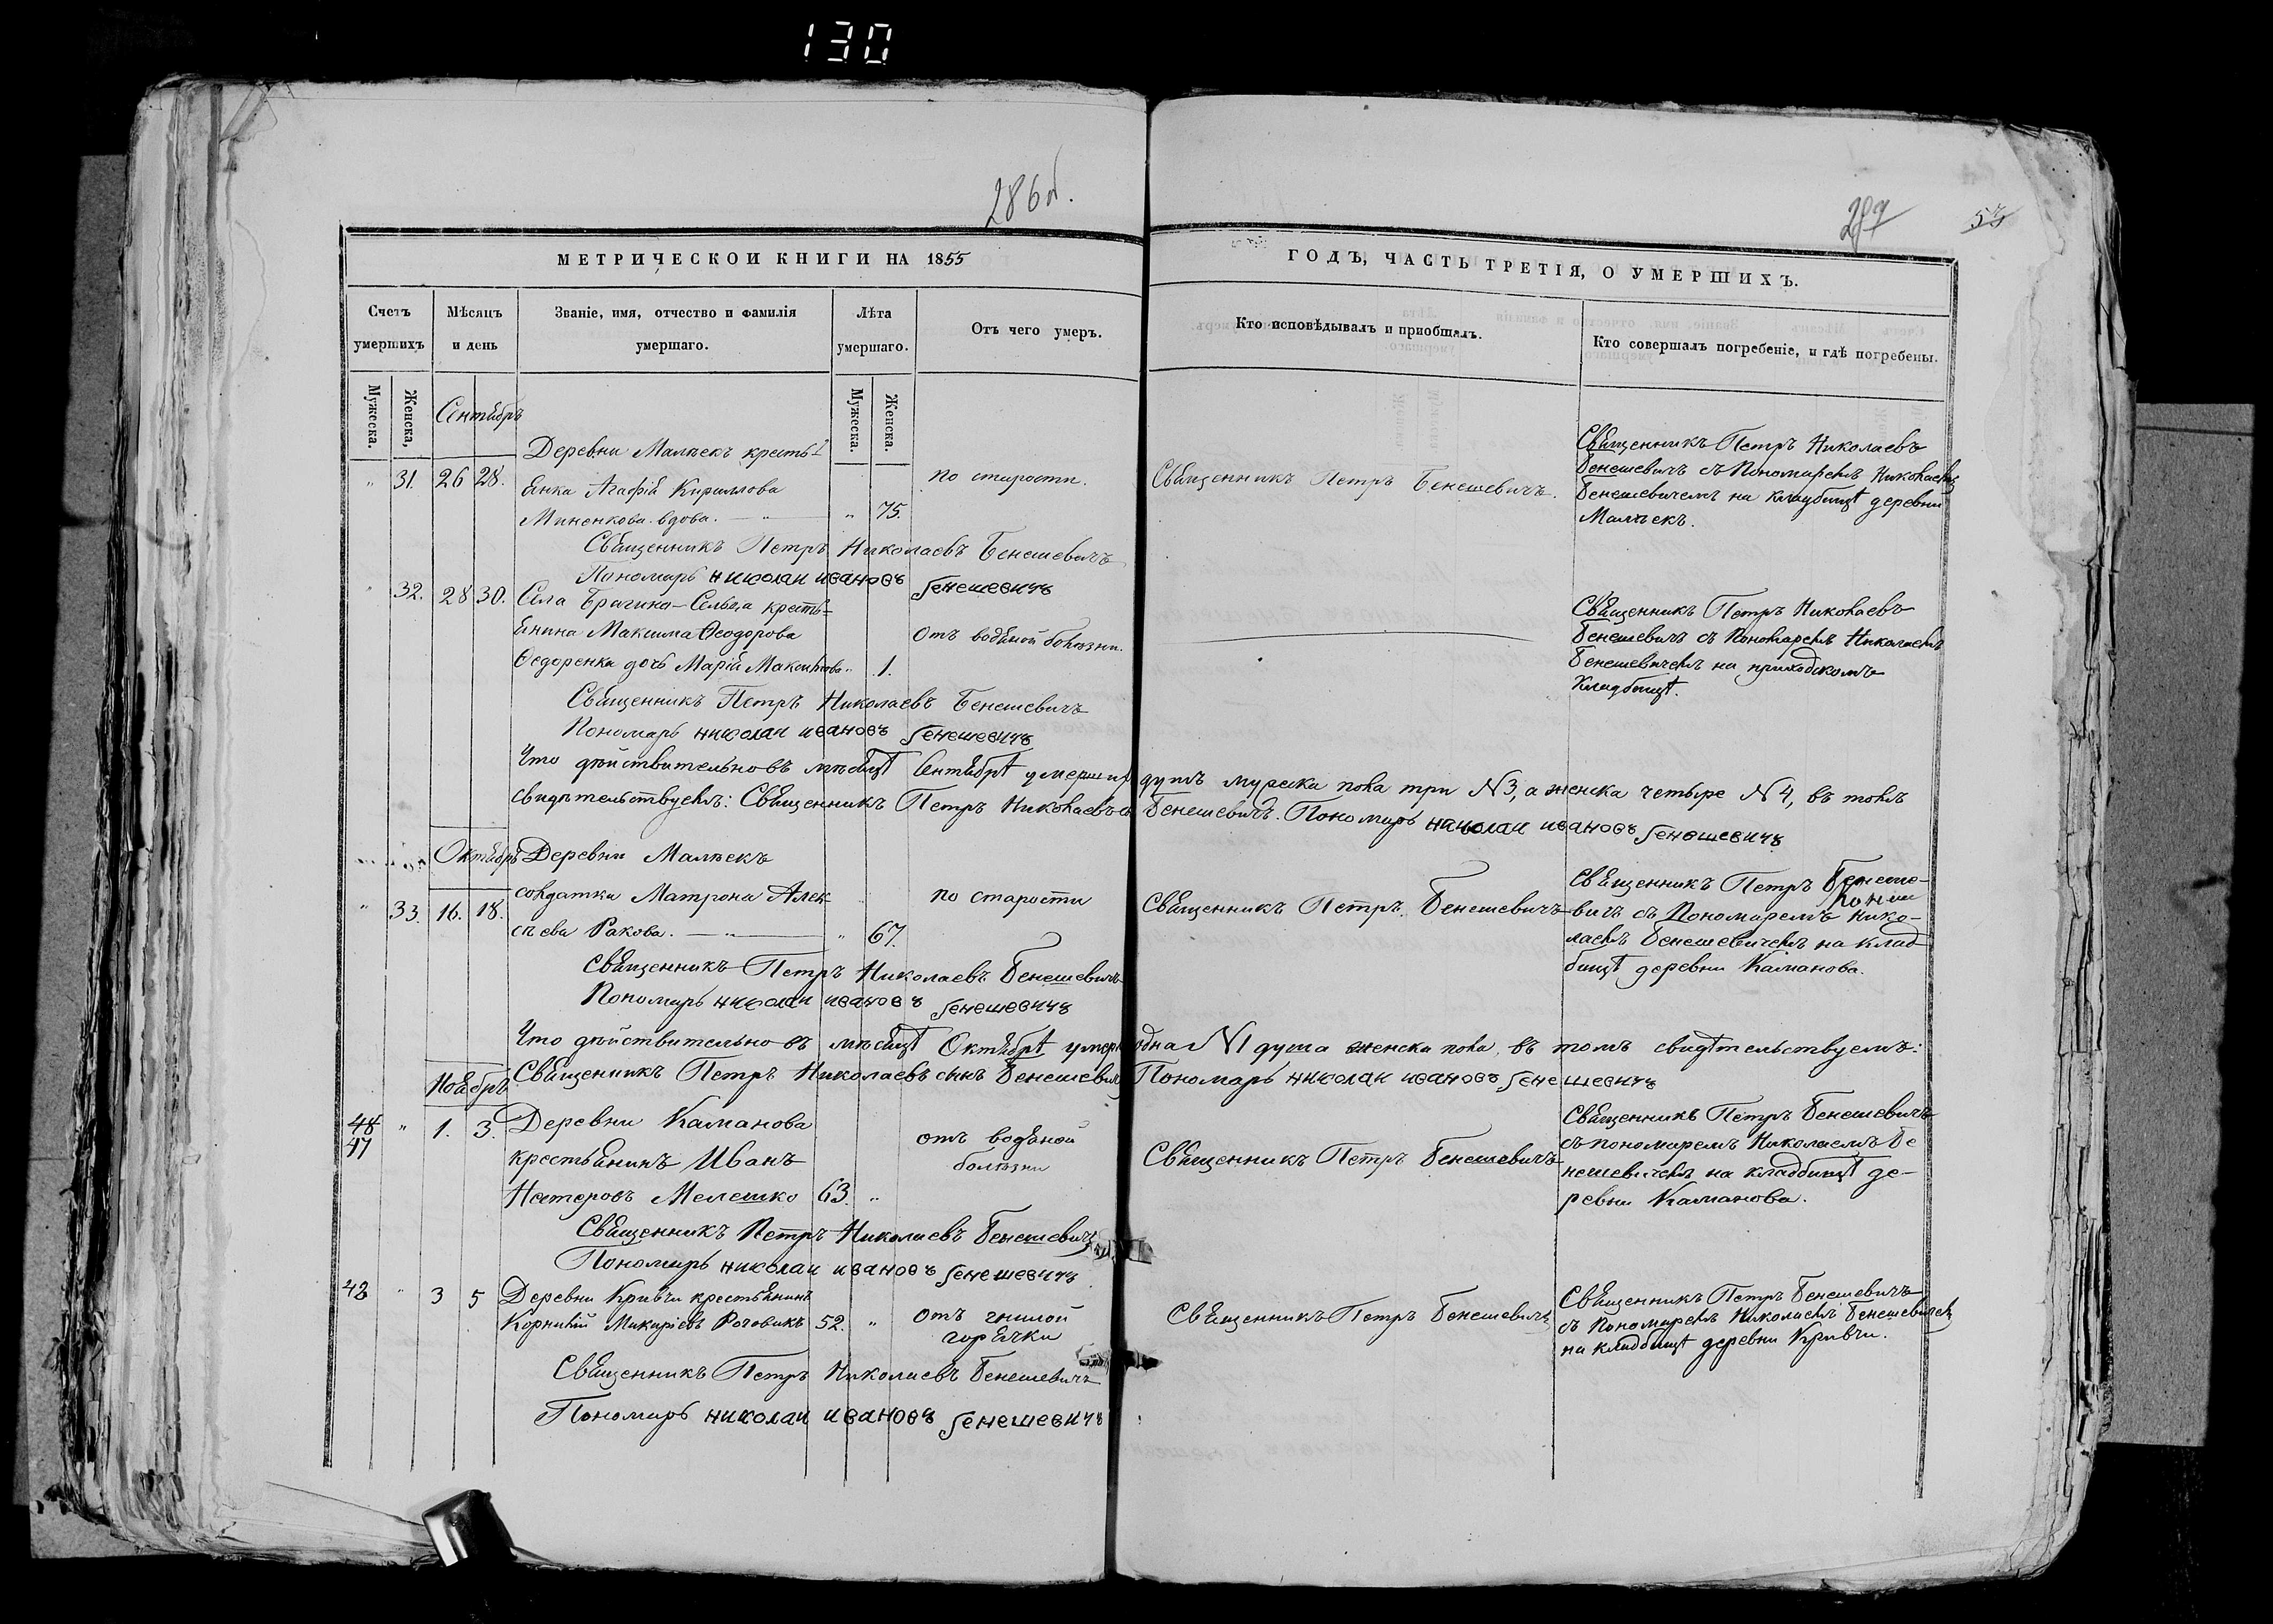 130
286об.
287
МЕТРИЧЕСКОИ КНИГИ НА 1855
ГОДЪ, ЧАСТЬ ТРЕТІЯ, О УМЕРШИХЪ.
Счетъ умершихъ
Мѣсяцъ и день
Званіе, имя, отчество и фамилія умершаго.
Лѣта умершаго.
Отъ чего умеръ.
Кто исповѣдывалъ и приобщалъ.
Кто совершалъ погребеніе, и гдѣ погребены.
Мужеска.
Женска,
Мужеска.
Женска.
Сентябрь
Деревни Малѣекъ кресть-
" 31. 26 28. янка Агафія Кириллова
Миненкова вдова. — " 75.
по старости.
Священникъ Петръ Бенешевичъ.
Священникъ Петръ Николаевъ
Бенешевичъ съ Пономаремъ Николаемъ
Бенешевичемъ на кладбищѣ деревни
Малѣекъ.
Священникъ Петръ Николаевъ Бенешевичъ
Пономарь николаи ивановъ бенешевичъ
" 32. 28 30. Села Брагина-Сельца кресть-
янина Максима Ѳеодорова
Ѳедоренка дочь Марія Максимова " 1.
отъ водяной болѣзни.
Священникъ Петръ Николаевъ
Бенешевичъ съ Пономаремъ Николаемъ
Бенешевичемъ на приходскомъ
кладбищѣ.
Священникъ Петръ Николаевъ Бенешевичъ
Пономарь николаи ивановъ бенешевичъ
Что дѣйствительно въ мѣсяцѣ Сентябрѣ умерши душъ мужеска пола три N3, а женска четыре N4, въ томъ
свидѣтельствуемъ: Священникъ Петръ Николаевъ Бенешевичъ. Пономарь николаи ивановъ бенешевичъ
Октябрь
Деревни Малѣекъ
" 33. 16. 18. солдатка Матрона Алек-
сѣева Ракова. — " 67.
по старости
Священникъ Петръ Бенешевичъ
Священникъ Петръ Бенеше-
вичъ съ Пономаремъ Нико-
лаемъ Бенешевичемъ на клад-
бищѣ деревни Каманова.
Священникъ Петръ Николаевъ Бенешевичъ
Пономарь николаи ивановъ бенешевичъ
Что дѣйствительно въ мѣсяцѣ Октябрѣ умерла одна N1 душа женска пола, въ томъ свидѣтельствуемъ:
Священникъ Петръ Николаевъ сынъ Бенешевичъ Пономарь николаи ивановъ бенешевичъ
Ноябрь
48
47 " 1. 3. Деревни Каманова
крестьянинъ Иванъ
Нестеровъ Мелешко 63. "
отъ водяной
болѣзни
Священникъ Петръ Бенешевичъ
Священникъ Петръ Бенешевичъ
съ пономаремъ Николаемъ Бе
нешевичемъ на кладбищѣ де-
ревни Каманова.
Священникъ Петръ Николаевъ Бенешевичъ
Пономарь николаи ивановъ бенешевичъ
48 " 3 5 Деревни Кривчи крестьянинъ
Корнилій Макаріевъ Роговикъ 52. "
отъ гнилой
горячки
Священникъ Петръ Бенешевичъ
Священникъ Петръ Бенешевичъ
съ Пономаремъ Николаемъ Бенешевичемъ
на кладбищѣ деревни Кривчи.
Священникъ Петръ Николаевъ Бенешевичъ
Пономарь николаи ивановъ бенешевичъ